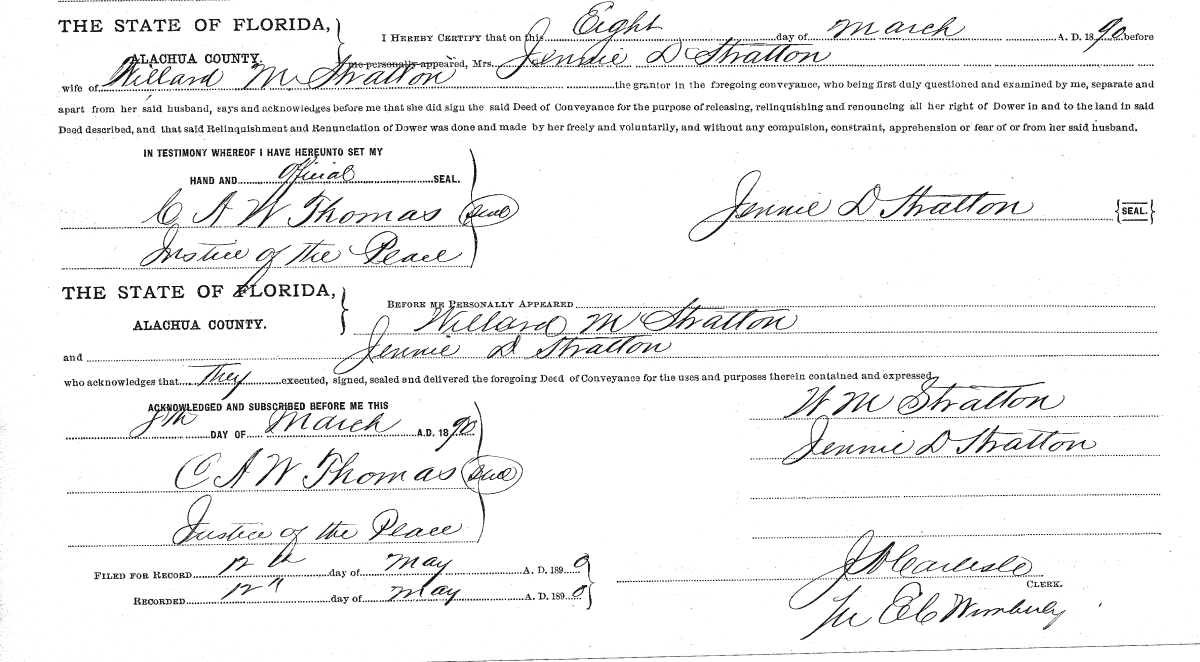 THE STATE OF FLORIDA,
ALACHUA COUNTY.
I HEREBY CERTIFY that on this Eight day of March A. D. 1890 before
me personally appeared, Mrs. Jennie D Stratton
wife of Willard M Stratton the grantor in the foregoing conveyance, who being first duly questioned and examined by me, separate and
apart from her said husband, says and acknowledges before me that she did sign the said Deed of Conveyance for the purpose of releasing, relinquishing and renouncing all her right of Dower in and to the land in said
Deed described, and that said Relinquishment and Renunciation of Dower was done and made by her freely and voluntarily, and without any compulsion, constraint, apprehension or fear of or from her said husband.
IN TESTIMONY WHEREOF I HAVE HEREUNTO SET MY
HAND AND official SEAL.
C A W Thomas Seal
Jennie D Stratton {SEAL.}
Justice of the Peace
THE STATE OF FLORIDA,
ALACHUA COUNTY.
BEFORE ME PERSONALLY APPEARED
Willard M Stratton
and Jennie D Stratton
who acknowledges that they executed, signed, sealed and delivered the foregoing Deed of Conveyance for the uses and purposes therein contained and expressed.
ACKNOWLEDGED AND SUBSCRIBED BEFORE ME THIS
8th DAY OF March A.D. 1890
W M Stratton
Jennie D Stratton
C A W Thomas Seal
Justice of the Peace
FILED FOR RECORD 12th day of May A. D. 1890
RECORDED 12th day of May A. D. 1890
J A Carlisle
CLERK.
Wimberly